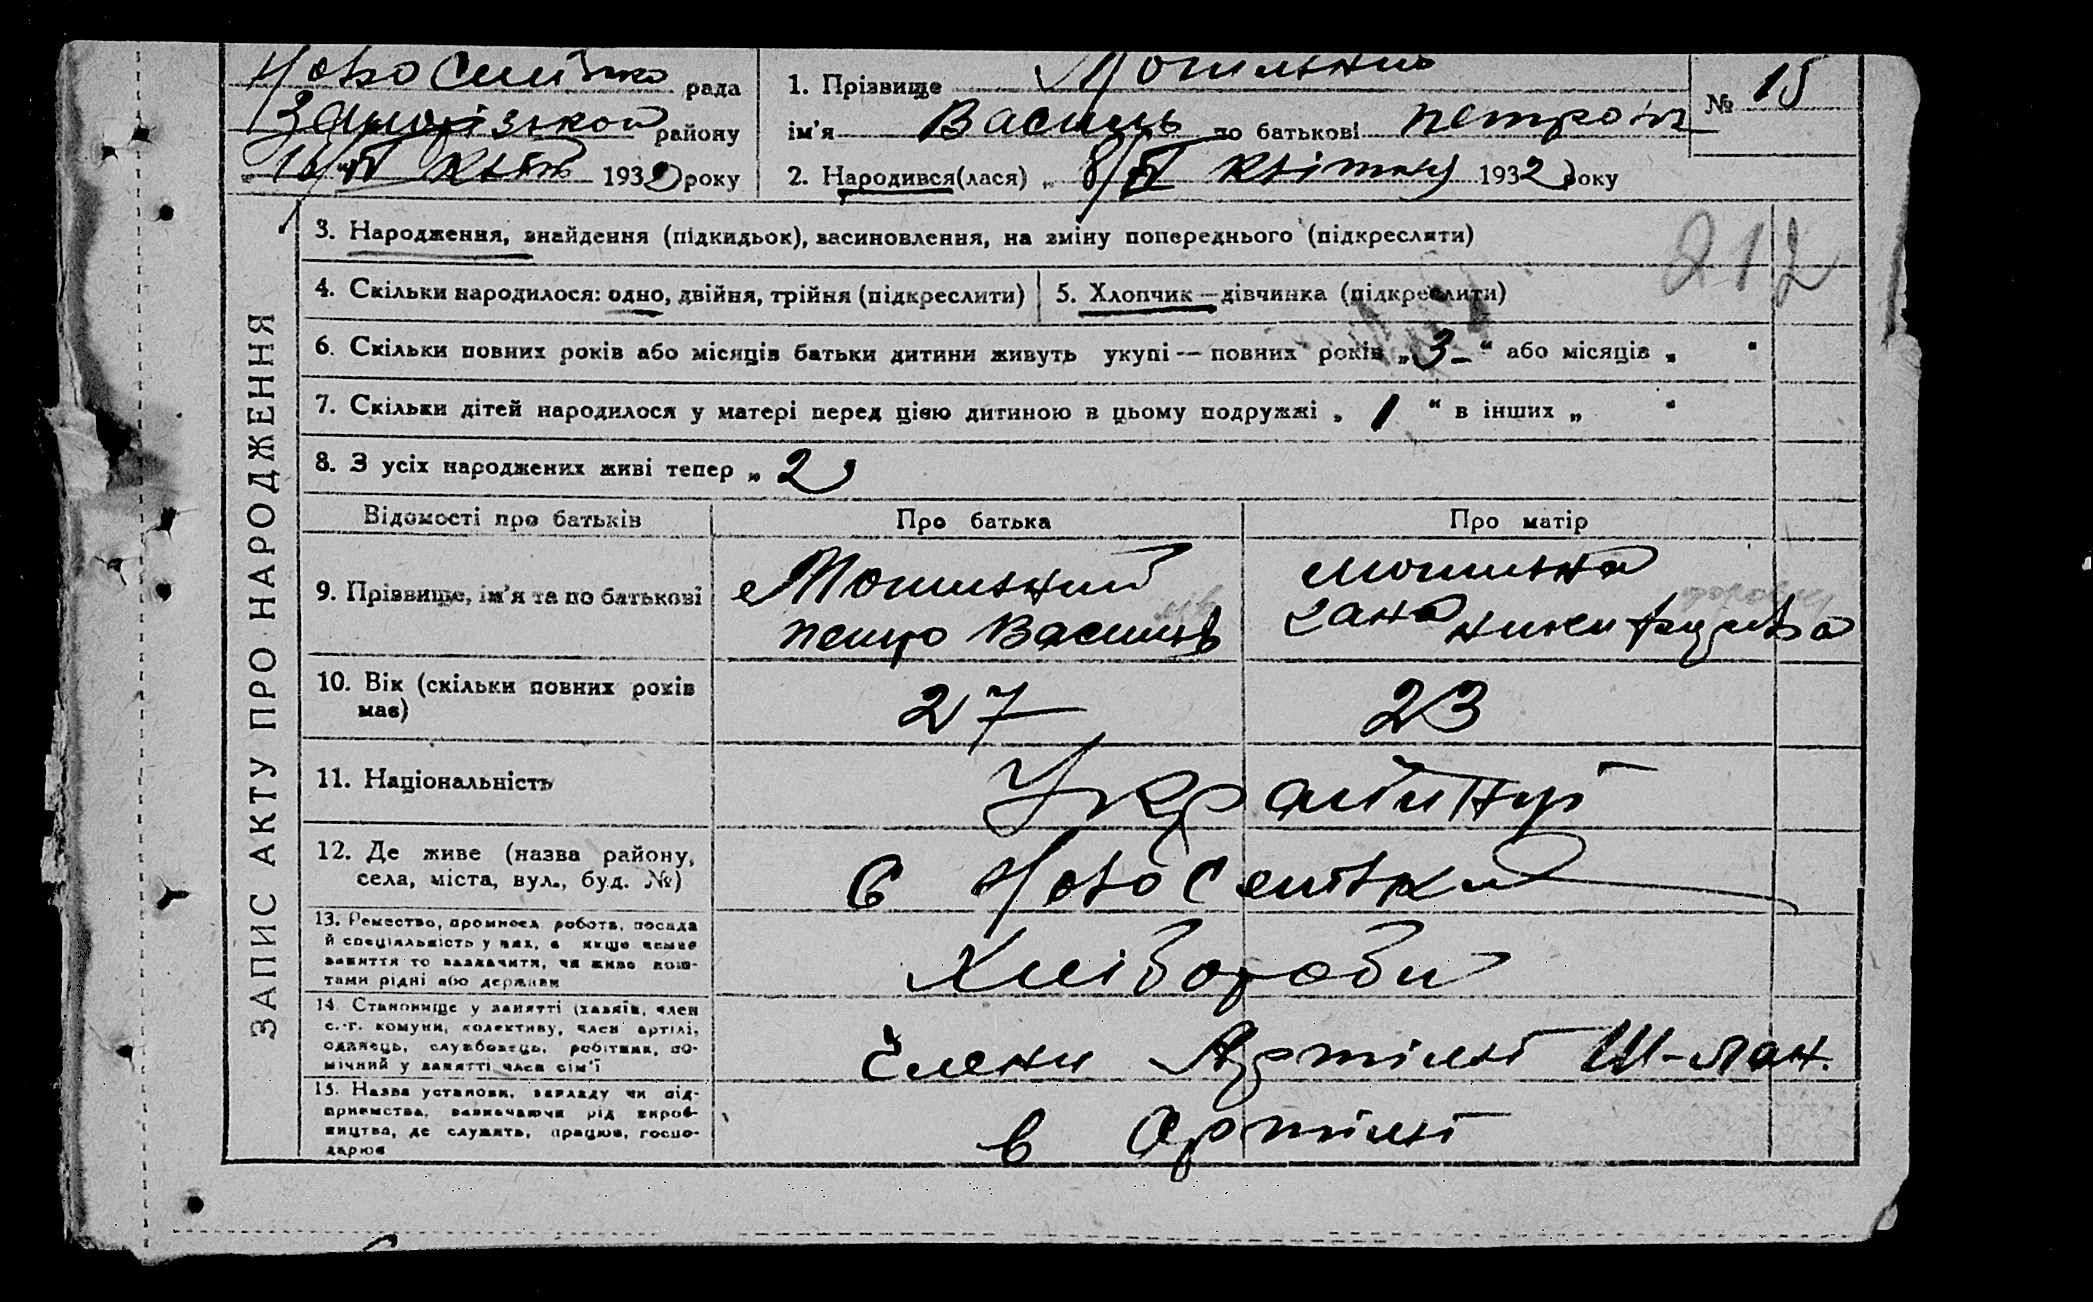 Новоселівко рада
Запорізькой району
„10/IV Квітн 1932 року
1. Прізвище Могильний
ім'я Василь по батькові петров
№ 15
2. Народився(лася) „ 8/IV квітня 1932 року
ЗАПИС АКТУ ПРО НАРОДЖЕННЯ
3. Народження, знайдення (підкидьок), васиновлення, на зміну попереднього (підкреслити)
212
4. Скільки народилося: одно, двійня, трійня (підкреслити)
5. Хлопчик—дівчинка (підкреслити)
6. Скільки повних років або місяців батьки дитини живуть укупі — повних років „3-“ або місяців „ “
7. Скільки дітей народилося у матері перед цією дитиною в цьому подружжі „ 1 “ в інших „ “
8. З усіх народжених живі тепер „ 2
Відомості про батьків
Про батька
Про матір
9. Прізвище, ім'я та по батькові
Могильний
петро Василів
могильна
10. Вік (скільки повних років має)
27
23
11. Національність
Українці
12. Де живе (назва району,
села, міста, вул., буд. №)
С Новоселівка
13. Ремество, промисел робота, посада
й спеціяльність у них, а якщо немає
заняття то зазначити, чи живе кош-
тами рідні або держави
Хлібороби
14. Становище у занятті (хазяїн, член
с.-г. комуни, колективу, член артілі,
одинець, службовець, робітник, по-
мічний у занятті член сім'ї
Члени Артілі Ш-лан.
15. Назва установи, закладу чи під-
приємства, зазначаючи рід вироб-
ництва, де служить, працює, госпо-
дарює
в Артілі